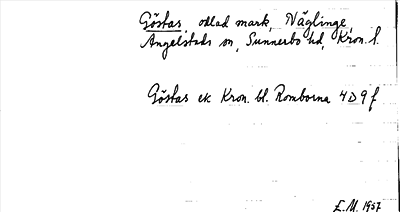 Göstas, odlad mark, Näglinge,
Angelstads sn, Sunnerbo hd, Kron. l.
Göstas ek Kron. bl. Romborna 4D9f
E.M. 1957